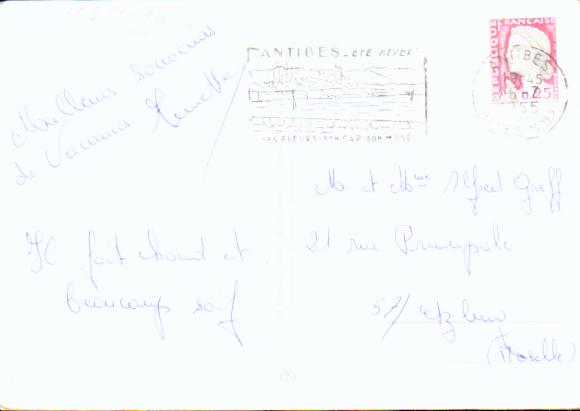 Meilleurs souvenirs
de Vacances
Il fait chaud et
beaucoup soif
ANTIBES - ETÉ-HIVER
SES FLEURS-SON CAP-SON MUSÉE
REPUBLIQUE
FRANÇAISE
0,25
ANTIBES
M et Mme Alfred Greff
21 rue Principale
57/
(Moselle)